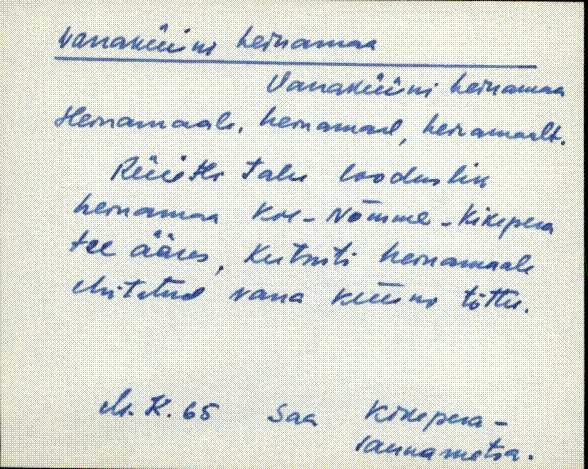 Vanaküüni heinamaa
Vanaküüni heinamaa
Heinamaale, heinamaal, heinamaalt.
Rüütli talu looduslik
heinamaa Koe-Nõmme-Kikepera
tee ääres, Kutsuti heinamaale
ehitatud vana küüni tõttu.
M. K. 65 Saa Kikepera-
Laanametsa.